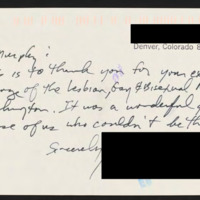 Denver, Colorado 8
Murphy:
is is to thank you for your co
rage of the lesbian, gay & Bisexual M
hington. It was a wonderful g
ose of us who couldn't be th
Sincerely,